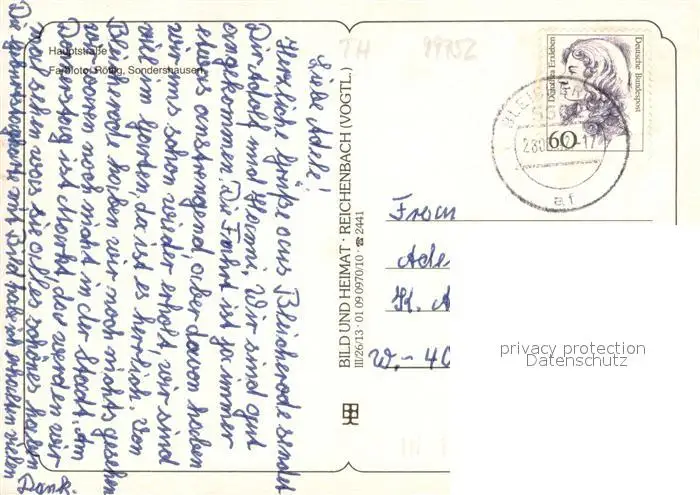 Hauptstraße
Farbfoto: Röttig, Sondershausen
Liebe Adele!
Herzliche Grüße aus Bleicherode sendet
Dir Adolf und Wir sind gut
angekommen. Die Fahrt ist ja immer
etwas anstrengend, aber davon haben
wir uns schon wieder erholt, wir sind
viel im Garten, da ist es herrlich. Von
Bleicherode haben wir noch nichts gesehen
wir waren noch nicht in der Stadt. Am
Donnerstag ist Markt, da werden wir
mal sehen was sie alles schönes haben
Die mit Bild habe ich erhalten vielen
Dank.
BILD UND HEIMAT · REICHENBACH (VOGTL.)
III/26/13 · 01 09 0970/10 · ☎ 2441
Deutsche Bundespost
60
af
Frau
Ade
W.- 40
privacy protection
Datenschutz